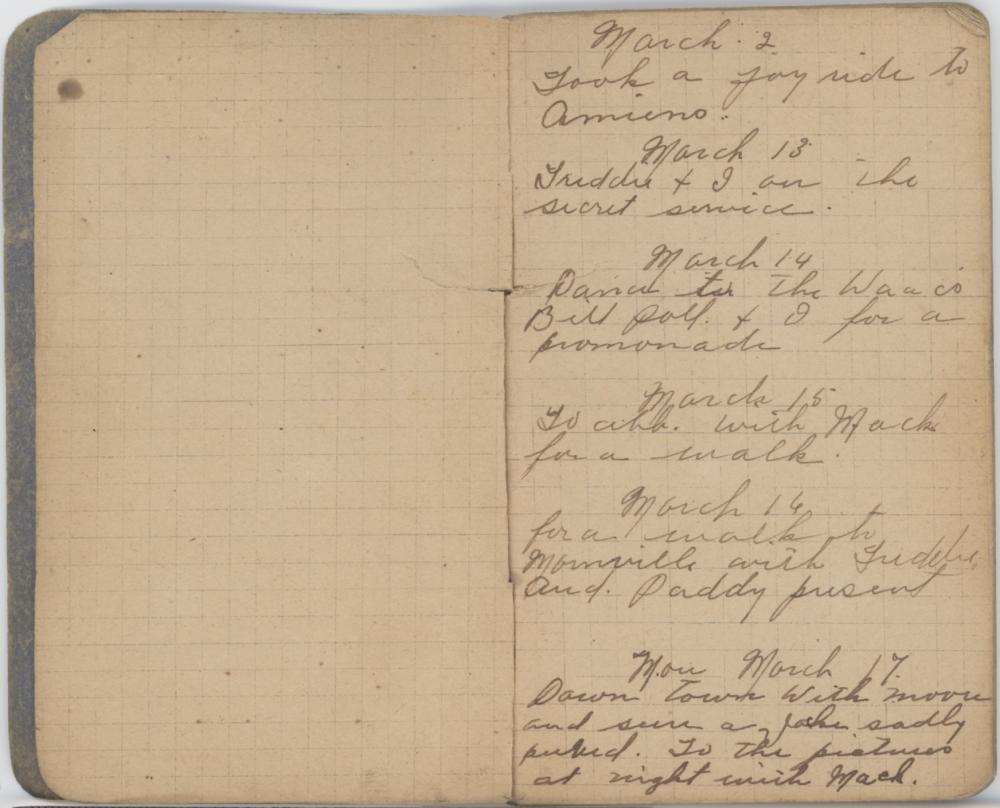 March. 2
Took a joy ride to
Amiens.
March 13
Freddie + I on the
secret service.
March 14
Dance to the Waacs
Bill Poll. + I for a
promonade
March 15
To abb. with Mack
for a walk.
March 16
for a walk to
with Freddie
And. Paddy present
Mon March 17.
Down town with moore
and seen a joke sadly
. To the pictures
at night with Mack.